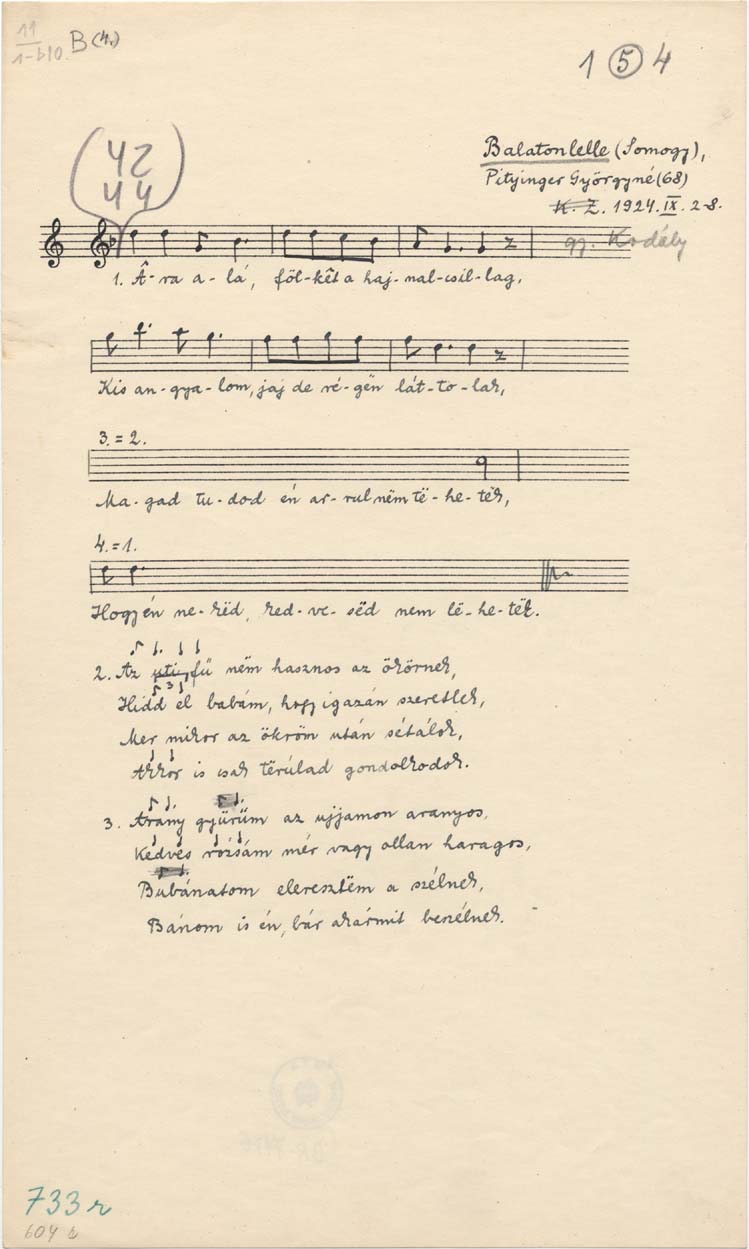 11
1-b10. B(4.)
1 5 4
42
44
Balatonlelle (Somogy),
Pityinger Györgyné (68)
K. Z. 1924. IX. 2-8.
gy. Kodály
1. Â-ra a-lá, föl-két a haj-nal-csil-lag,
Kis an-gya-lom, jaj de ré-gën lát-to-lak,
3.=2.
Ma-gad tu-dod én ar-rul nëm të-he-tëk,
4.=1.
Hogy én ne-këd, ked-ve-sëd nem lë-he-tëk.
2. Az uti fű nëm hasznos az ökörnek,
Hidd el babám, hogy igazán szeretlek,
Mer mikor az ökröm után sétálok,
Akkor is csak tërúlad gondolkodok.
3. Arany gyűrűm az ujjamon aranyos,
Kedves rózsám mér vagy ollan haragos,
Bubánatom eleresztëm a szélnek,
Bánom is én, bár akármit beszélnek.
733 r
604 r